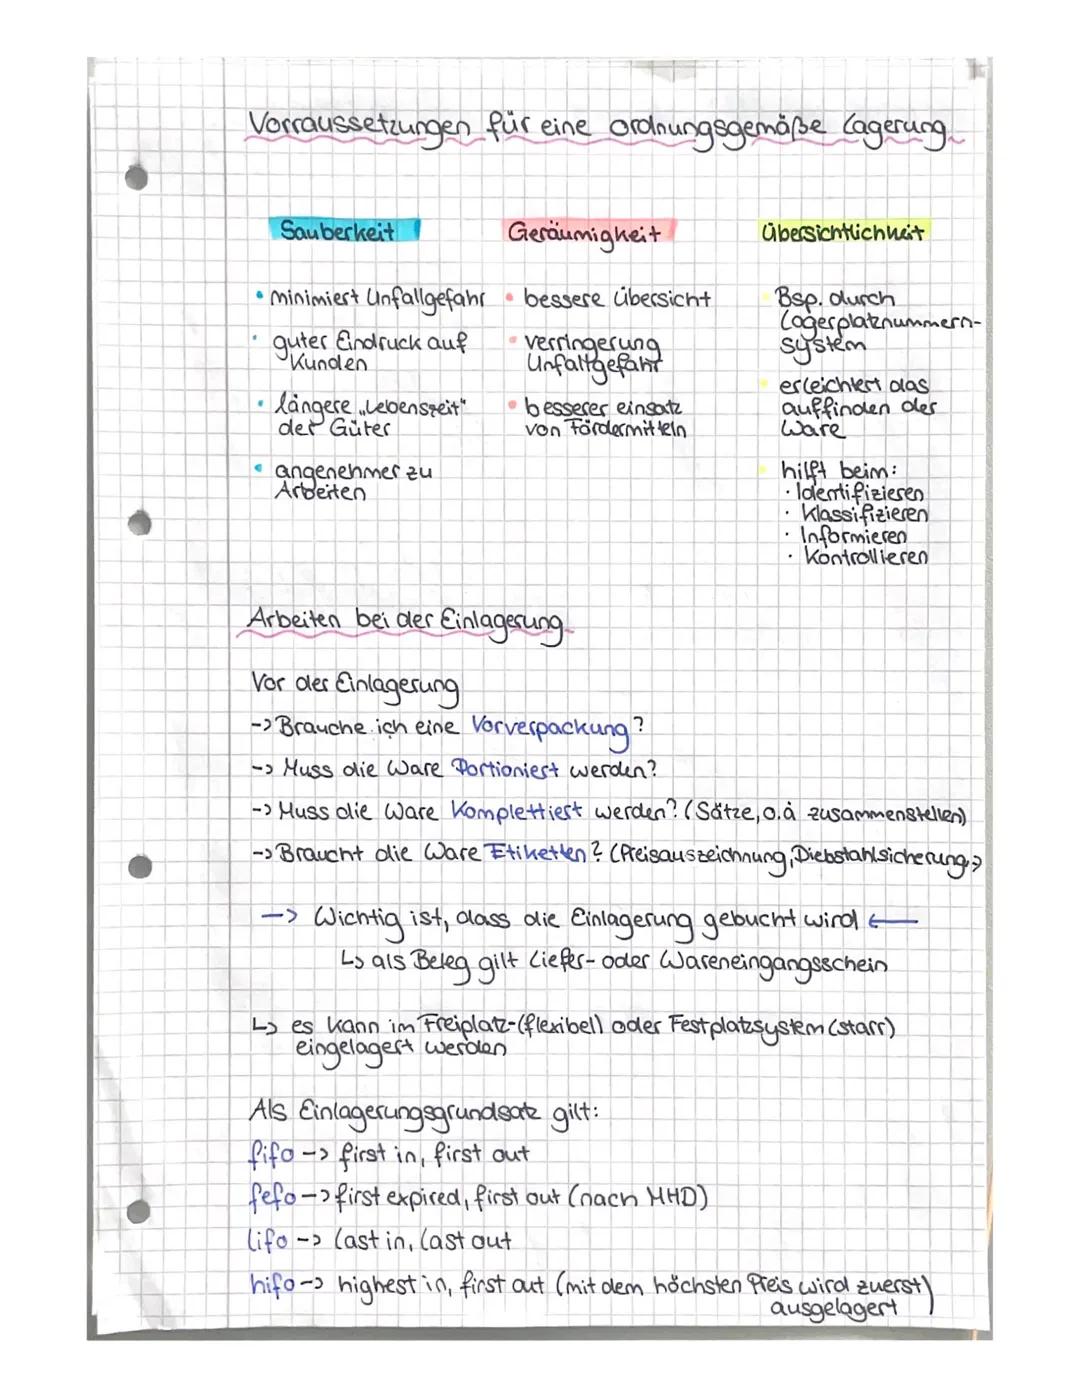 Vorraussetzungen für eine ordnungsgemäße Lagerung
Sauberkeit
• minimiert Unfallgefahr
• guter Eindruck auf
Kunden
• längere „Lebenszeit"
der Güter
• angenehmer zu
Arbeiten
Geräumigkeit
• bessere Übersicht
• verringerung
Unfallgefahr
• besserer einsatz
von Fördermitteln
Übersichtlichkeit
• Bsp. durch
Lagerplatznummern-
system
• erleichtert das
auffinden der
Ware
• hilft beim:
· Identifizieren
· Klassifizieren
· Informieren
· Kontrollieren
Arbeiten bei der Einlagerung
Vor der Einlagerung
-> Brauche ich eine Vorverpackung?
-> Muss die Ware Portioniert werden?
-> Muss die Ware Komplettiert werden? (Sätze, o.ä zusammenstellen)
-> Braucht die Ware Etiketten? (Preisauszeichnung, Diebstahlsicherung,)
-> Wichtig ist, dass die Einlagerung gebucht wird <-
↳ als Beleg gilt Liefer- oder Wareneingangsschein
↳ es kann im Freiplatz-(flexibel) oder Festplatzsystem (starr)
eingelagert werden
Als Einlagerungsgrundsatz gilt:
fifo -> first in, first out
fefo -> first expired, first out (nach MHD)
lifo -> last in, last out
hifo -> highest in, first out (mit dem höchsten Preis wird zuerst
ausgelagert)